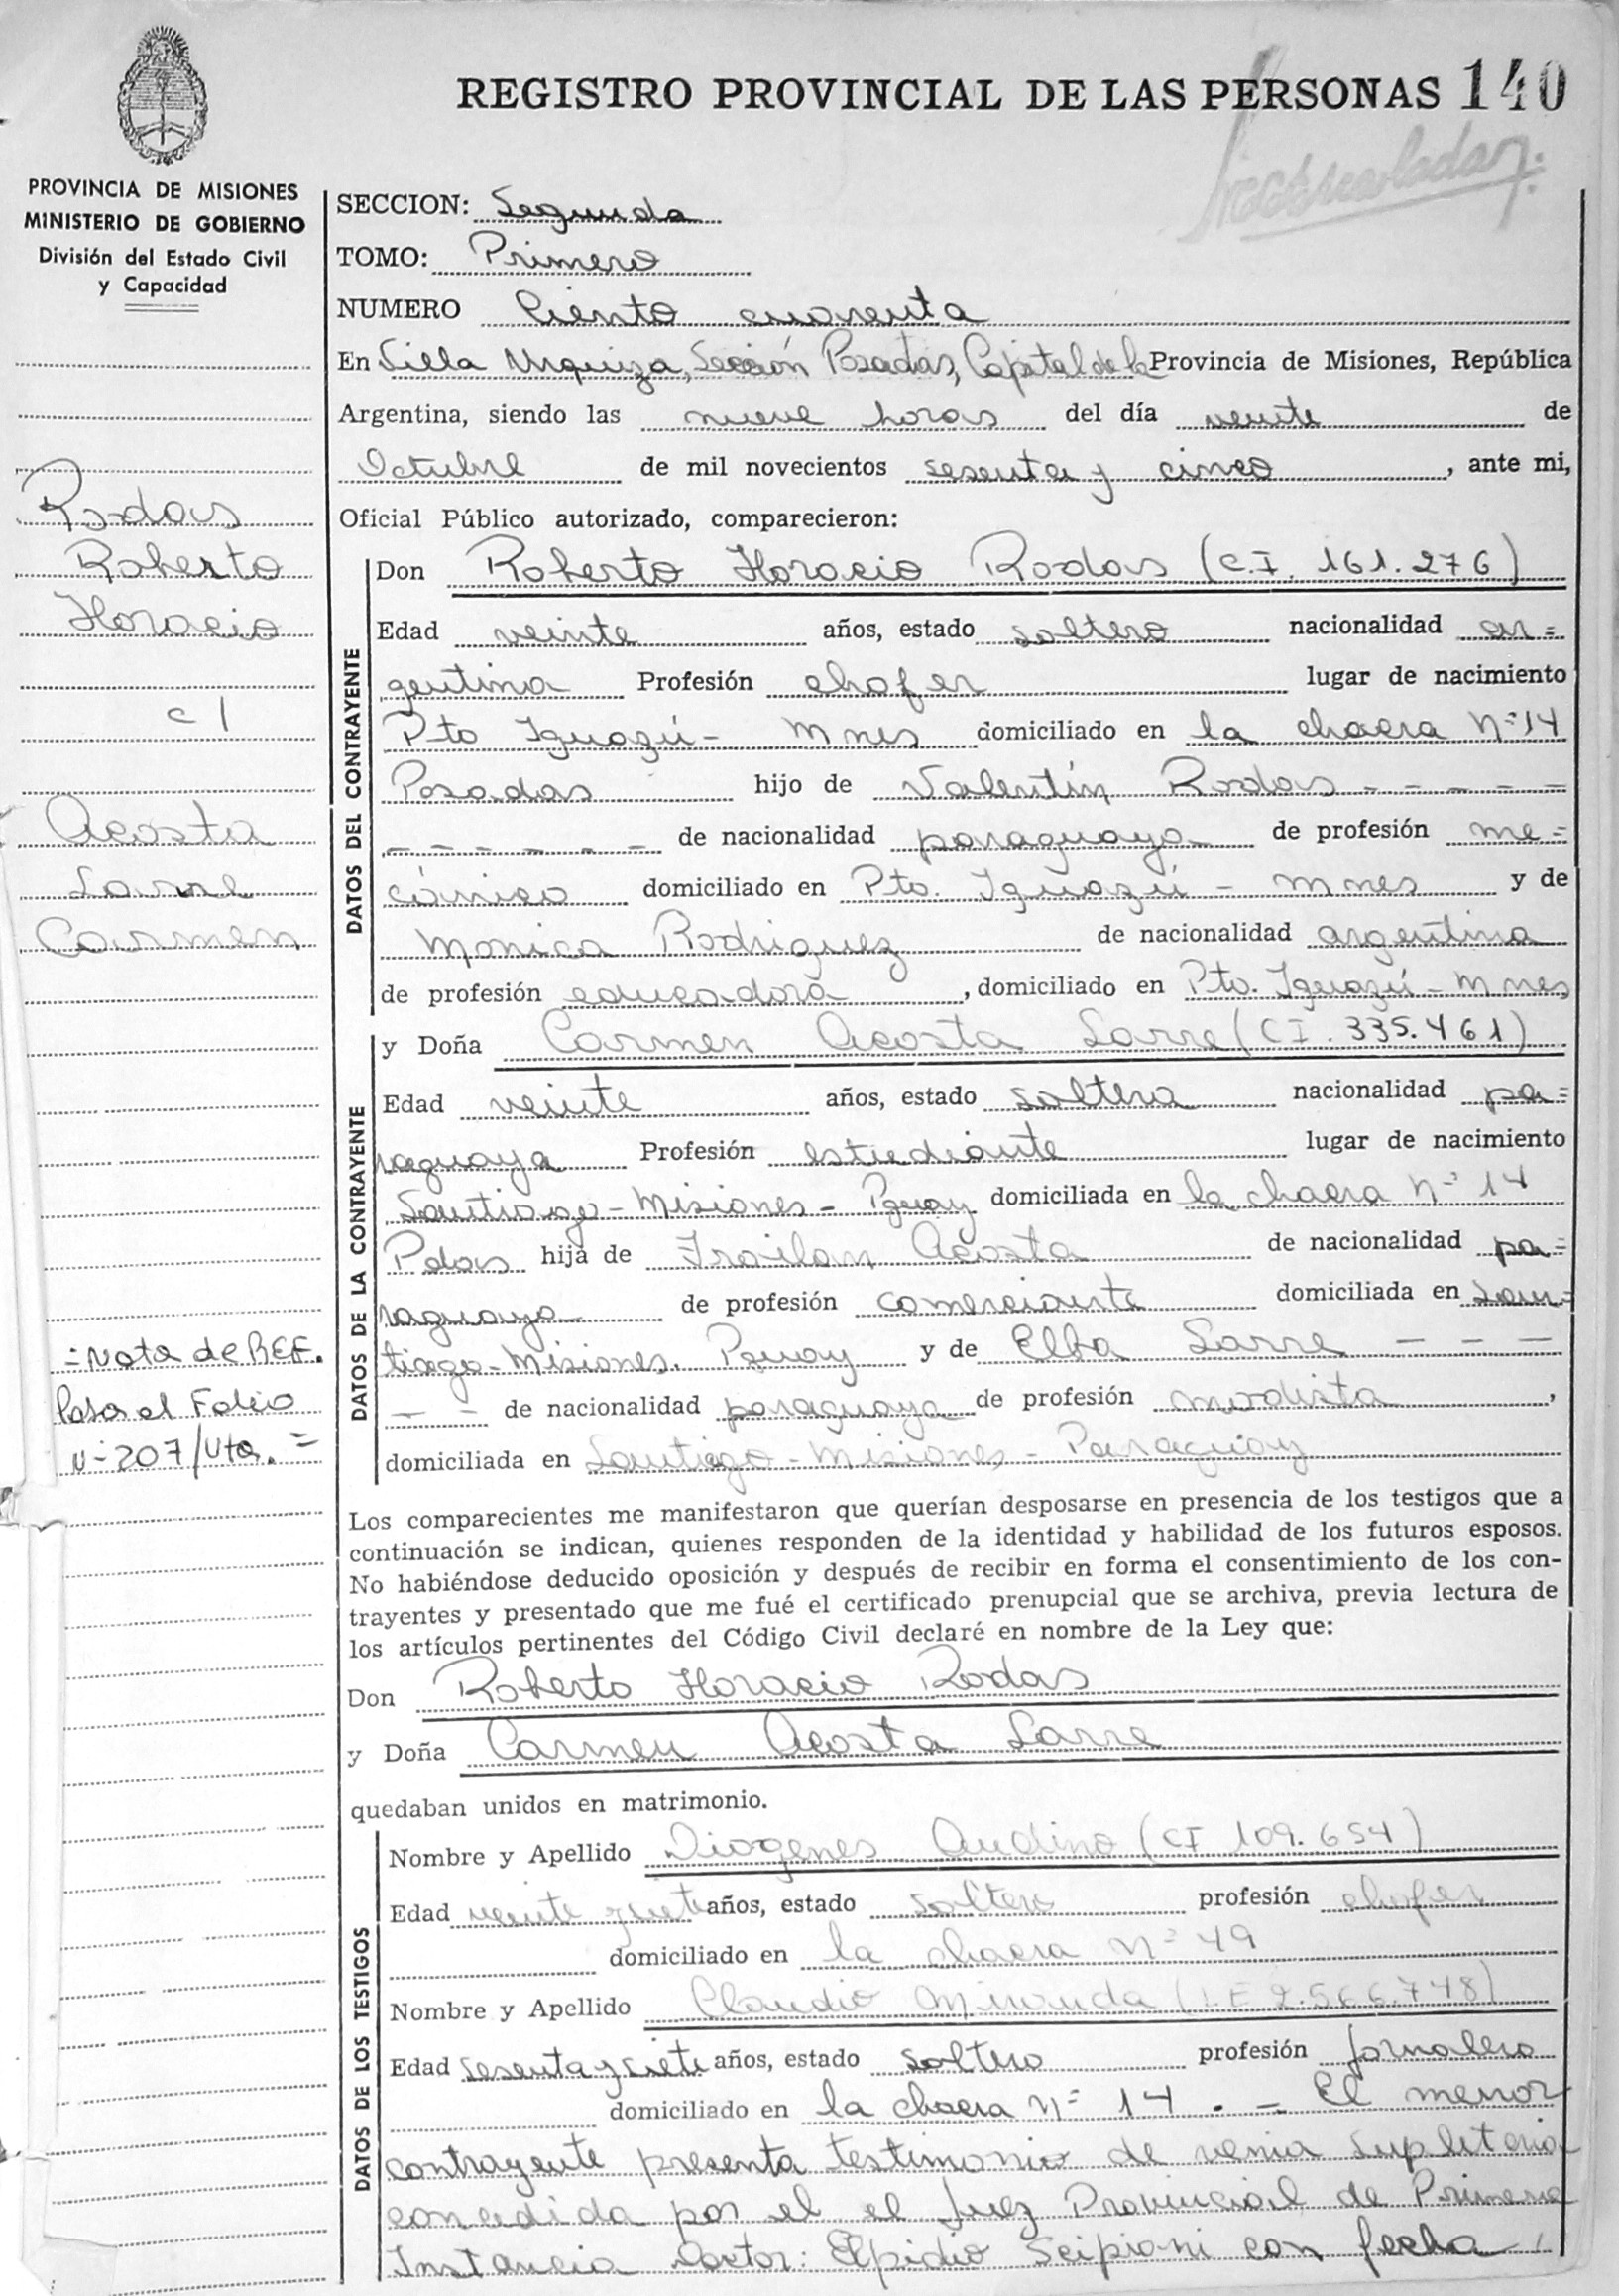 REGISTRO PROVINCIAL DE LAS PERSONAS 140
PROVINCIA DE MISIONES
MINISTERIO DE GOBIERNO
División del Estado Civil
y Capacidad
Rodas
Roberto
Horacio
c/
Acosta
Larre
Carmen
=Nota de REF.
Pasa al Folio
Nº 207/Vta. =
SECCION: Segunda
TOMO: Primero
NUMERO Ciento cuarenta
En Villa Urquiza, Sección Posadas, Capital de la Provincia de Misiones, República
Argentina, siendo las nueve horas del día veinte de
Octubre de mil novecientos sesenta y cinco, ante mi,
Oficial Público autorizado, comparecieron:
DATOS DEL CONTRAYENTE
Don Roberto Horacio Rodas (C.I. 161.276)
Edad veinte años, estado soltero nacionalidad ar=
gentina Profesión chofer lugar de nacimiento
Pto Iguazú - Mnes domiciliado en la chacra Nº 14
Posadas hijo de Valentín Rodas - - - - -
- - - - - - de nacionalidad paraguaya de profesión me=
cánico domiciliado en Pto. Iguazú - Mnes y de
Monica Rodriguez de nacionalidad argentina
de profesión educadora, domiciliado en Pto. Iguazú - Mnes
DATOS DE LA CONTRAYENTE
y Doña Carmen Acosta Larre (CI. 335.461)
Edad veinte años, estado soltera nacionalidad pa=
raguaya Profesión estudiante lugar de nacimiento
Santiago - Misiones - Pguay domiciliada en la chacra Nº 14
Pdas hija de Froilan Acosta de nacionalidad pa=
raguaya de profesión comerciante domiciliada en San=
tiago - Misiones. Pguay y de Elba Larre - - -
- - de nacionalidad paraguaya de profesión modista,
domiciliada en Santiago - Misiones - Paraguay
Los comparecientes me manifestaron que querían desposarse en presencia de los testigos que a
continuación se indican, quienes responden de la identidad y habilidad de los futuros esposos.
No habiéndose deducido oposición y después de recibir en forma el consentimiento de los con-
trayentes y presentado que me fué el certificado prenupcial que se archiva, previa lectura de
los artículos pertinentes del Código Civil declaré en nombre de la Ley que:
Don Roberto Horacio Rodas
y Doña Carmen Acosta Larre
quedaban unidos en matrimonio.
DATOS DE LOS TESTIGOS
Nombre y Apellido Diogenes Audino (CI 109.654)
Edad veinte y siete años, estado soltero profesión chofer
domiciliado en la chacra Nº 49
Nombre y Apellido Claudio Miranda (LE 2.566.748)
Edad sesenta y siete años, estado soltero profesión jornalero
domiciliado en la chacra Nº 14 . - El menor
contrayente presenta testimonio de venia supletoria
concedida por el el Juez Provincial de Primera
Instancia Doctor: Elpidio Scipioni con fecha